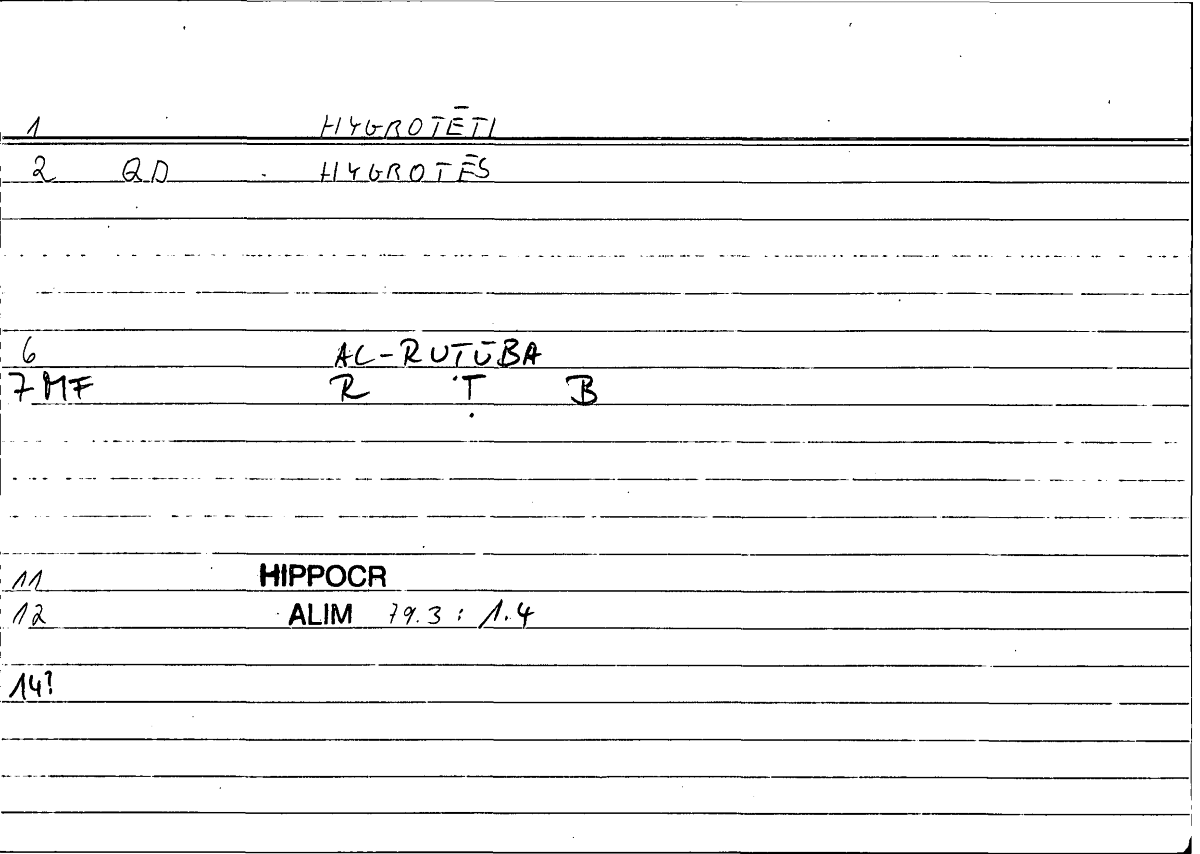 1 HYGROTĒTI
2 QD HYGROTĒS
6 AL-RUṬŪBA
7 MF R Ṭ B
11 HIPPOCR
12 ALIM 79.3 : 1.4
14?